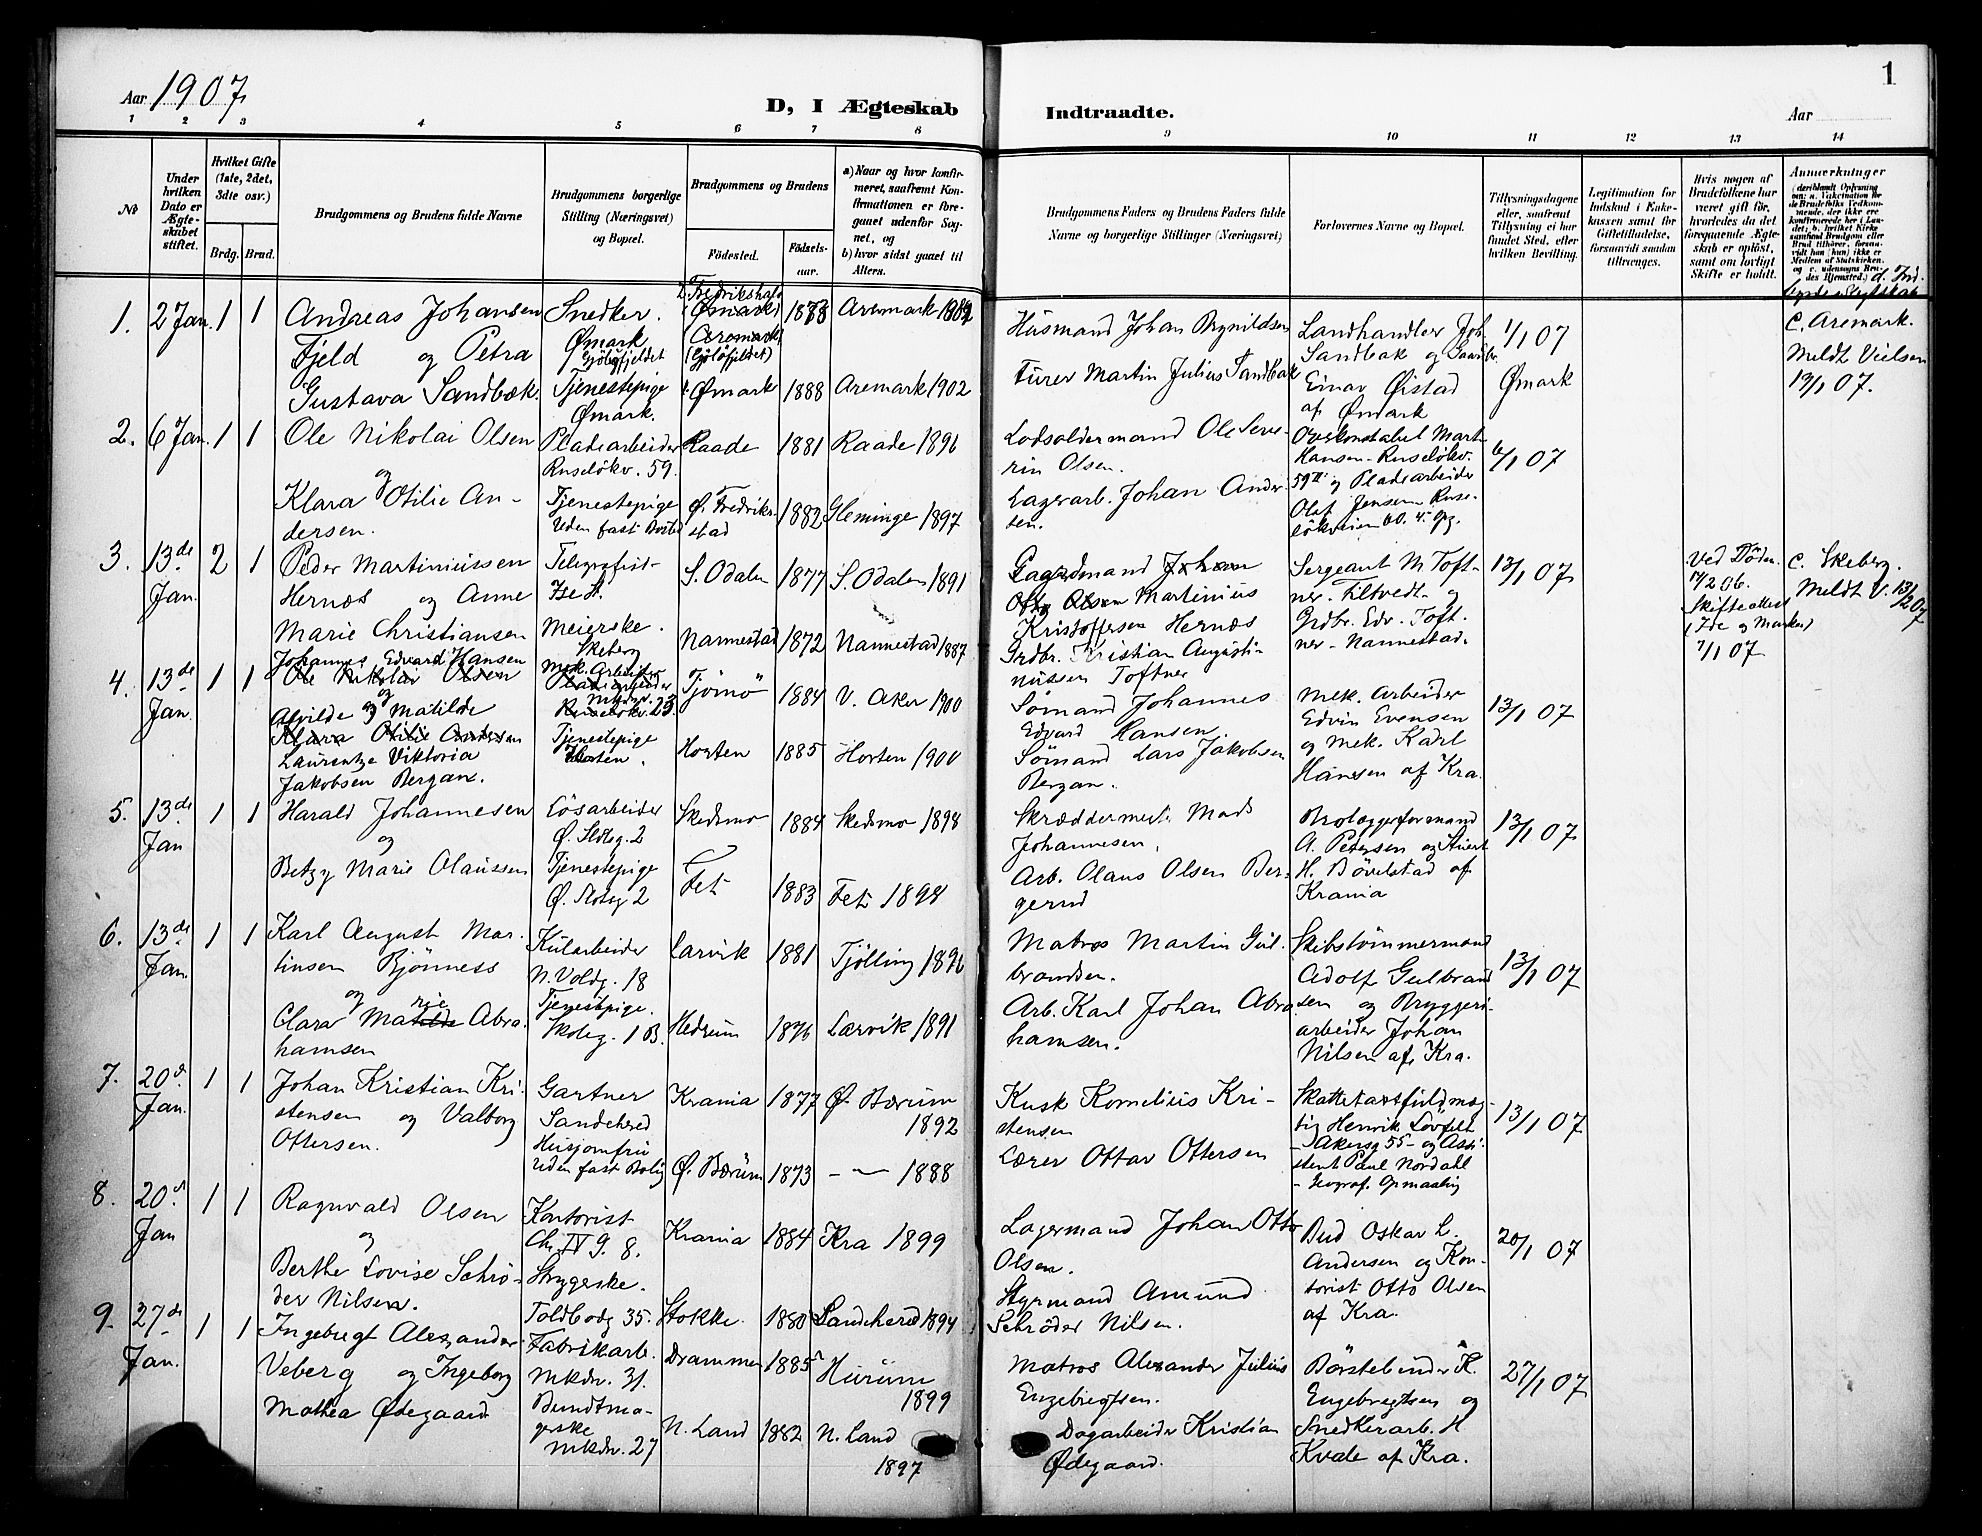 1
Aar 1907
D, I Ægteskab Indtraadte.
Aar
1 2 3 4 5 6 7 8 9 10 11 12 13 14
No
Under hvilken Dato er Ægteskabet stiftet.
Hvilket Gifte (1ste, 2det, 3die osv.)
Brdg. Brud.
Brudgommens og Brudens fulde Navne
Brudgommens borgerlige Stilling (Næringsvei) og Bopæl.
Brudgommens og Brudens
Fødested. Fødselsaar.
a) Naar og hvor konfirmeret, saafremt Konfirmationen er foregaaet udenfor Sognet, og
b) hvor sidst gaaet til Alters.
Brudgommens Faders og Brudens Faders fulde Navne og borgerlige Stillinger (Næringsvei)
Forlovernes Navne og Bopæl.
Tillysningsdagene eller, saafremt Tillysning ei har fundet Sted, efter hvilken Bevilling.
Legitimation for Indskud i Enkekassen samt for Giftetilladelse, forsaavidt saadan tiltrænges.
Hvis nogen af Brudefolkene har været gift før, hvorledes da det foregaaende Ægteskab er opløst, samt om lovligt Skifte er holdt.
Anmærkninger
1. 2 Jan. 1 1
Andreas Johansen
Fjeld og Petra
Gustava Sandbæk.
Snedker.
Ømark
Tjenestepige
Ømark.
Fredrikshald
Ømark
Aremark
Ømark
1888
Aremark
Aremark 1902
Husmand Johan Brynildsen
Furer Martin Julius Sandbak
Landhandler Joh.
Sandbak og Gaardbr.
Einar Øistad
af Ømark
1/1 07
Ømark
C. Aremark.
Meldt Vielsen
12/1 07.
2. 6 Jan. 1 1
Ole Nikolai Olsen
og
Klara Otilie An-
dersen.
Pladearbeider
Ruseløkv. 59.
Tjenestepige
Uden fast Bosted
Raade
Ø. Fredrik-
stad
1881
1882
Raade 1896
Gleminge 1897
Lodsoldermand Ole Seve-
rin Olsen.
Lagerarb. Johan Ander-
sen.
Overkonstabel Mart.
Hansen - Ruseløkv.
59 II og Pladearbeider
Olaf Jensen Ruse-
løkveien 60. 4. Opg.
6/1 07
3. 13de Jan. 2 1
Peder Martiniussen
Hernæs og Anne
Marie Christiansen
Telegrafist -
Ize St.
Meierske.
Skeberg
S. Odalen
Nannestad
1877
1872
S. Odalen 1891
Nannestad 1887
Gaardmand Johan
Olsen Martinius
Kristoffersen Hernæs
Grdbr. Kristian Augusti-
nussen Toftner
Sergeant M Toft-
ner - Filtvedt - og
Grdbr. Edv. Toft-
ner - Nannestad.
13/1 07
Ved Døden
Skifteattest
(Ide og Marker)
7/1 07
C. Skeberg.
Meldt V. 13/2 07
4. 13de Jan. 1 1
Johannes Edvard Hansen
Ole Nikolai Olsen
og
Alvilde Matilde
Klara Otilie Andersen
Laurentze Viktoria
Jakobsen Bergan.
Mek. Arbeider
Pladearbeider
Ruseløkv. 23.
Tjenestepige
Horten.
Tjømø
Horten
1884
1885
V. Aker 1900
Horten 1900
Sømand Johannes
Edvard Hansen.
Sømand Lars Jakobsen
Bergan.
Mek. Arbeider
Edvin Evensen
og Mek. Karl
Hansen af Kra.
13/1 07
5. 13de Jan 1 1
Harald Johannesen
og
Betzy Marie Olaussen
Løsarbeider
Ø. Slotsg. 2
Tjenestepige
Ø. Slotsg 2
Skedsmo
Fet
1884
1883
Skedsmo 1898
Fet 1898
Skræddermester Mads
Johannesen.
Arb. Olaus Olsen Ber-
gerud
Brolæggerformand
A. Petersen og Stuert
H. Bøvelstad af
Krania
13/1 07
6. 13de Jan. 1 1
Karl August Mar-
tinsen Bjønness
og
Clara Marie Abra
hamsen
Kularbeider
N. Voldg. 18
Tjenestepige.
Skoleg. 1 B.
Larvik
Hedrum
1881
1876
Tjølling 1896
Larvik 1891
Matros Martin Gul-
brandsen.
Arb. Karl Johan Abra
hamsen.
Skibstømmermand
Adolf Gulbrand
sen og Bryggeri-
arbeider Johan
Nilsen af Kra.
13/1 07
7. 20d. Jan. 1 1
Johan Kristian Kri-
stensen og Valborg
Ottersen.
Gartner
Sandeherred
Husjomfru
Uden fast Bolig
Krania
Ø. Bærum
1877
1873
Ø. Bærum
1892
- " - 1888
Kusk Kornelius Kri-
stensen
Lærer Ottar Ottersen
Skattetaxtfuldmæg-
tig Henrik Løvfelt
- Akersg 55 - og Assi-
stent Paul Nordahl
- Geograf. Opmaaling
13/1 07
8. 20d. Jan 1 1
Ragnvald Olsen
og
Berthe Lovise Schrø-
der Nilsen.
Kontorist
Chr. IV G. 8.
Strygerske.
Toldbodg 35.
Krania
Stokke.
1884
1880
Kra 1899
Sandeherred 1894
Lagermand Johan Otto
Olsen.
Styrmand Amund
Schrøder Nilsen.
Bud Oskar L.
Andersen og Kon-
torist Otto Olsen
af Kra.
20/1 07
9. 27de Jan. 1 1
Ingebrigt Alexander
Veberg og Ingeborg
Mathea Ødegaard
Fabrikarb.
Mkdv. 31.
Bundtma-
gerske
Mkdv. 27
Drammen
N. Land
1885
1882
Hurum
1899
N. Land
1897
Matros Alexander Julius
Engebrigtsen.
Dagarbeider Kristian
Ødegaard.
Børstebinder K.
Engebregtsen og
Snedkerarb. H
Kvale af Kra.
27/1 07